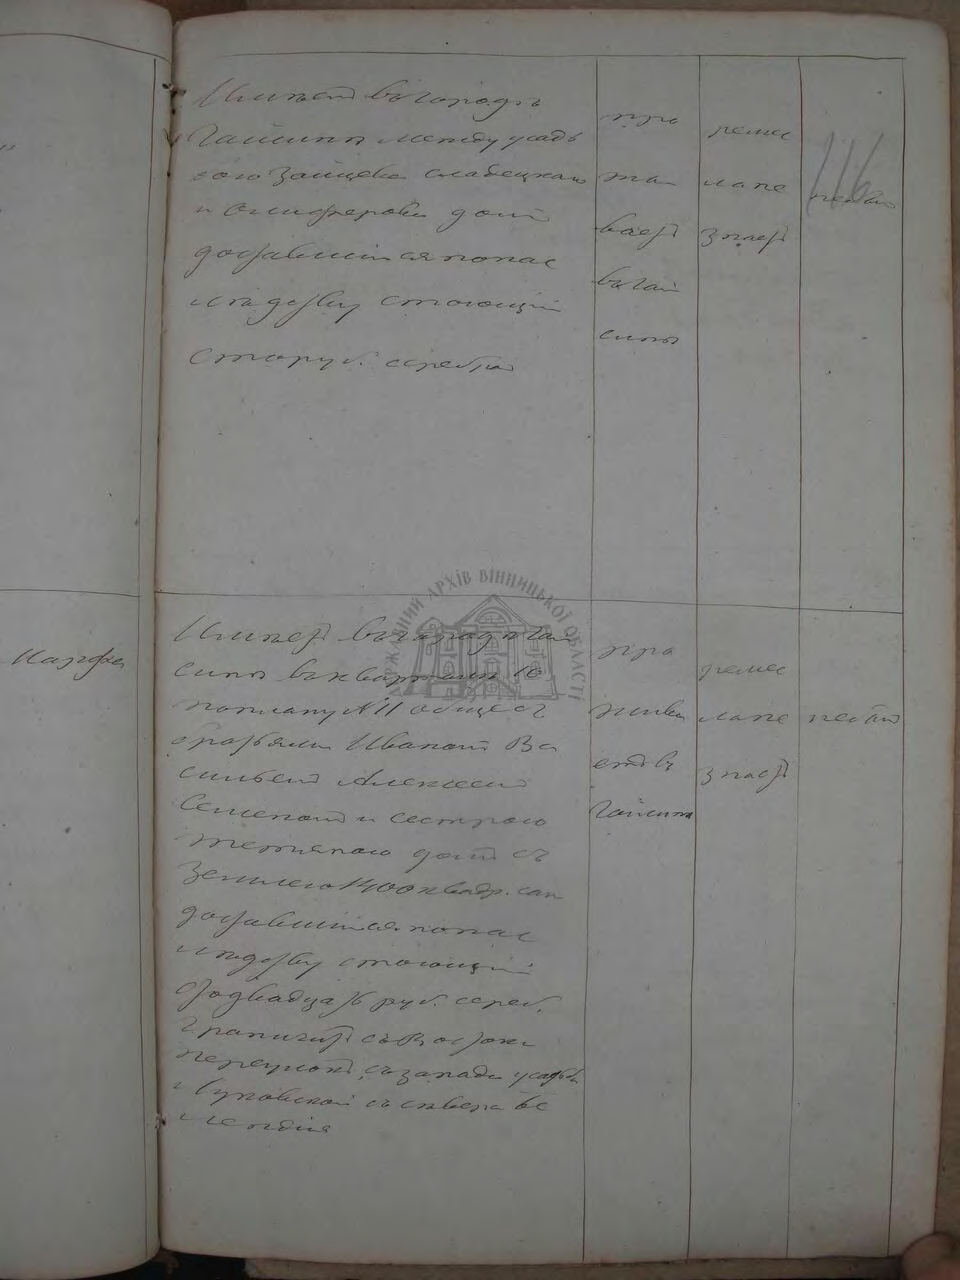 116
Имѣетъ въ городѣ
Гайсинѣ между усадь
бою Зайцева Слабецкаго
и домъ
доставшійся по нас
лѣдству стоющій
сто руб. серебра
про
жи
ваетъ
въ Гай
синѣ
ремес
ла не
знаетъ
Карфа
Имѣетъ въ городѣ Гай
синѣ въ квартали 10
по плану №11 обще съ
братьями Иваномъ Ва
сильемъ Алексеемъ
Семеномъ и сестрою
домъ съ
землею 1400 квадр. саж
доставшійся по нас
лѣдству стоющій
сто двадцать руб. сереб.
граничитъ съ Востока
съ запада усадьба
съ сѣвера
про
жива
етъ въ
Гайсинѣ
ремес
ла не
знаетъ
ДЕРЖАВНИЙ АРХІВ ВІННИЦЬКОЇ ОБЛАСТІ